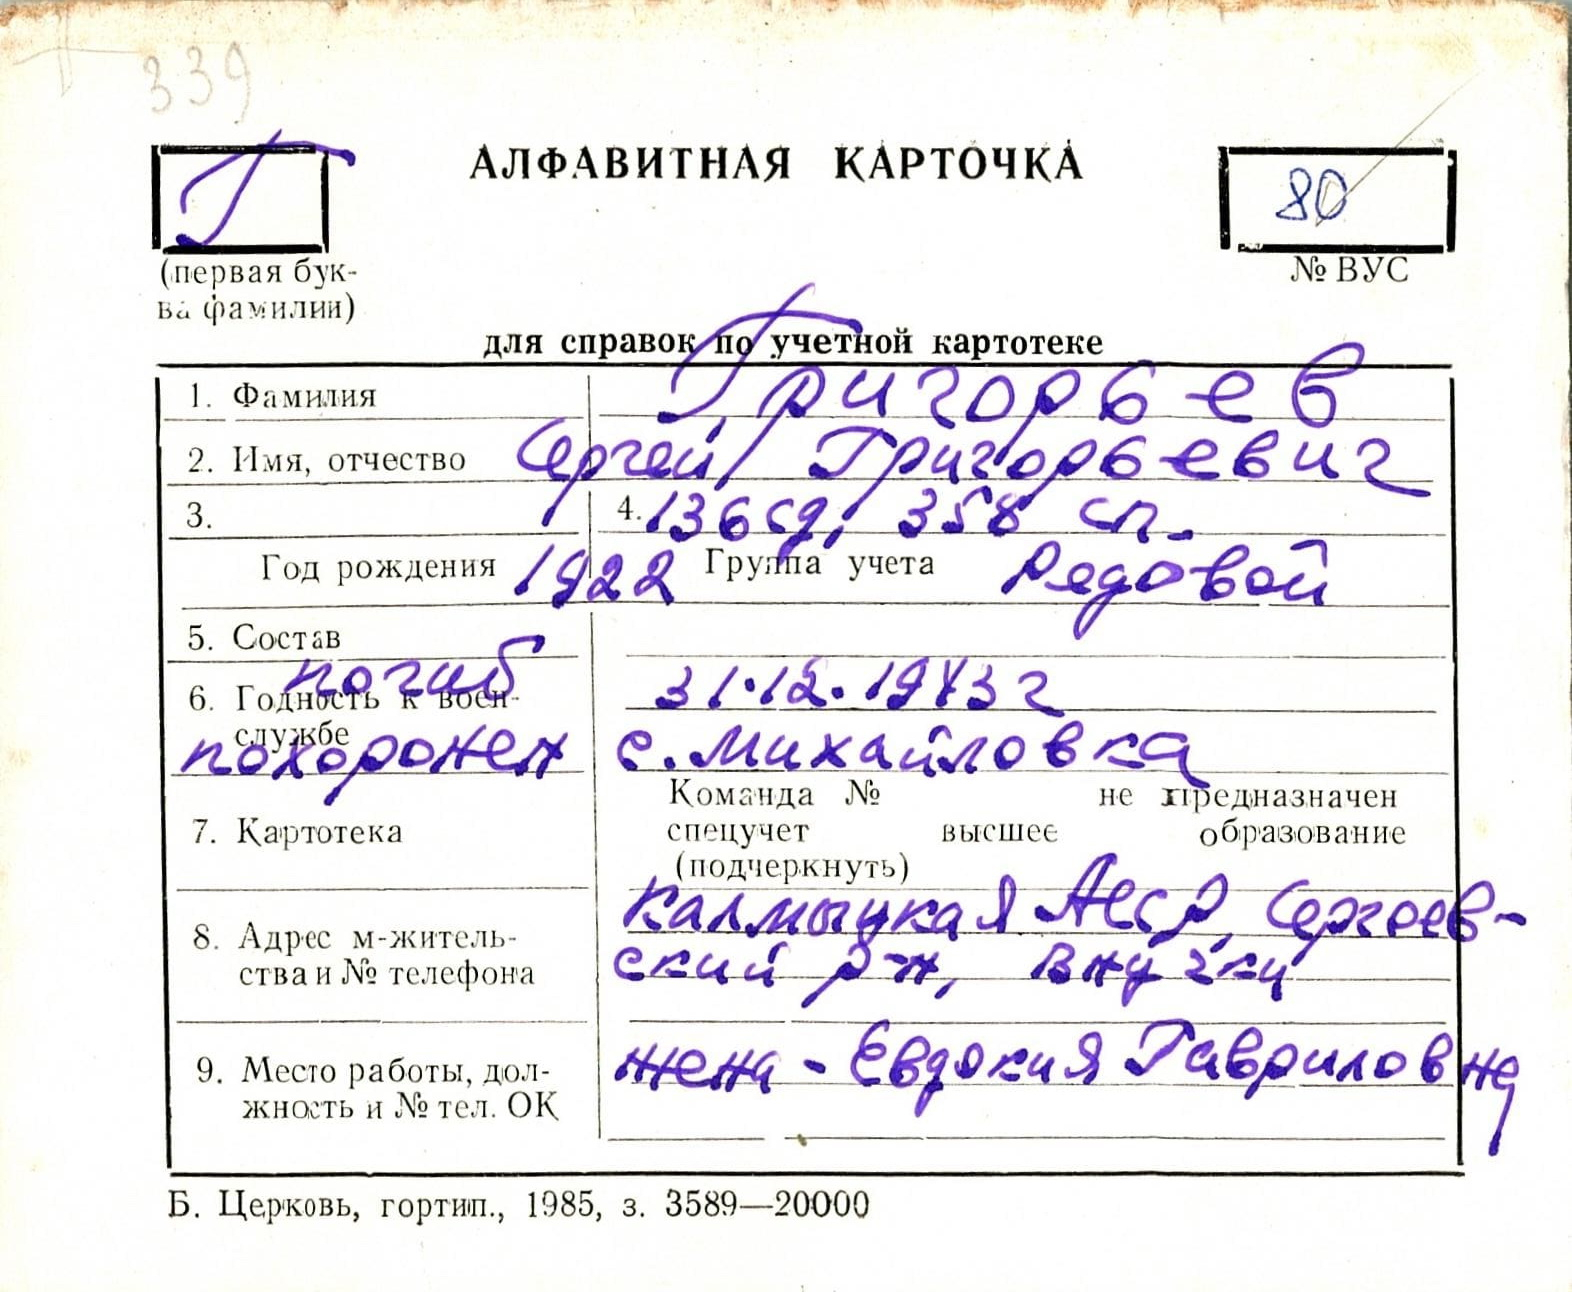 339
Г
АЛФАВИТНАЯ КАРТОЧКА
80
(первая бук-
ва фамилии)
№ ВУС
для справок по учетной картотеке
1. Фамилия Григорьев
2. Имя, отчество Сергей Григорьевич
3. 4. 136 сд, 358 сп.
Год рождения 1922 Группа учета Рядовой
5. Состав
погиб 31.12.1943 г
6. Годность к воен-
службе
похоронен с. Михайловка
Команда № не предназначен
7. Картотека спецучет высшее образование
(подчеркнуть)
Калмыцкая АССР, Сергеев-
8. Адрес м-житель-
ства и № телефона ский р-н,
9. Место работы, дол- жена - Евдокия Гавриловна
жность и № тел. ОК
Б. Церковь, гортип., 1985, з. 3589—20000